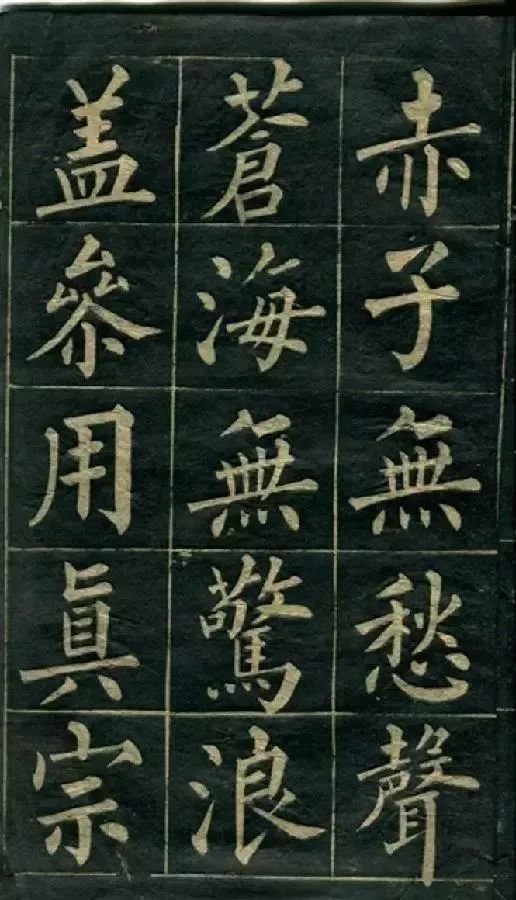 赤子無愁聲
蒼海無驚浪
盖參用眞宗